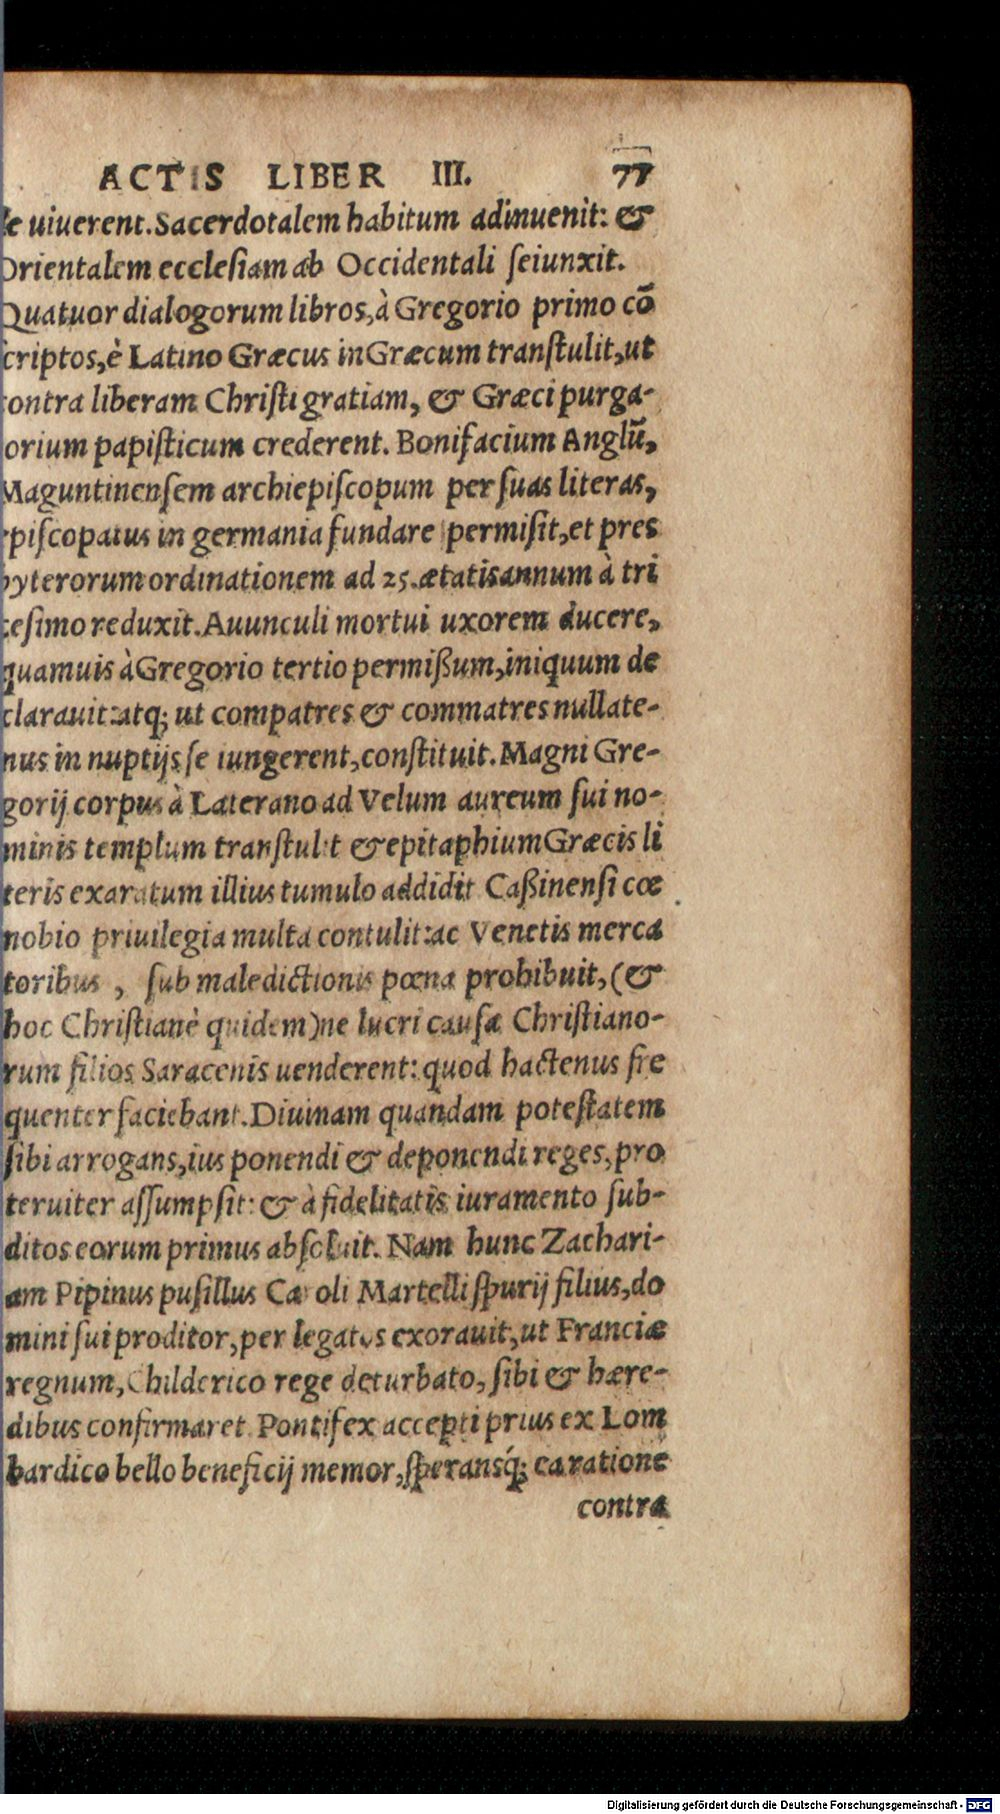 ACTIS LIBER III. 77
le uiuerent. Sacerdotalem habitum adinuenit: &
Orientalem ecclesiam ab Occidentali seiunxit.
Quatuor dialogorum libros, à Gregorio primo cō
scriptos, è Latino Græcus in Græcum transtulit, ut
contra liberam Christi gratiam, & Græci purga-
orium papisticum crederent. Bonifacium Anglū,
Maguntinensem archiepiscopum per suas literas,
episcopatus in germania fundare permisit, et pres
byterorum ordinationem ad 25. ætatis annum à tri
cesimo reduxit. Auunculi mortui uxorem ducere,
quamuis à Gregorio tertio permißum, iniquum de
clarauit: atq; ut compatres & commatres nullate-
nus in nuptijs se iungerent, constituit. Magni Gre-
gorij corpus à Laterano ad Velum aureum sui no-
minis templum transtulit & epitaphium Græcis li
teris exaratum illius tumulo addidit Caßinensi cœ
nobio priuilegia multa contulit: ac Venetis merca
toribus, sub maledictionis pœna prohibuit, (&
hoc Christianè quidem) ne lucri causa Christiano-
rum filios Saracenis uenderent: quod hactenus fre
quenter faciebant. Diuinam quandam potestatem
sibi arrogans, ius ponendi & deponendi reges, pro
teruiter assumpsit: & à fidelitatis iuramento sub-
ditos eorum primus absoluit. Nam hunc Zachari-
am Pipinus pusillus Caroli Martelli spurij filius, do
mini sui proditor, per legatos exorauit, ut Franciæ
regnum, Childerico rege deturbato, sibi & hære-
dibus confirmaret. Pontifex accepti prius ex Lom
bardico bello beneficij memor, speransq́; ea ratione
contra
Digitalisierung gefördert durch die Deutsche Forschungsgemeinschaft - DFG